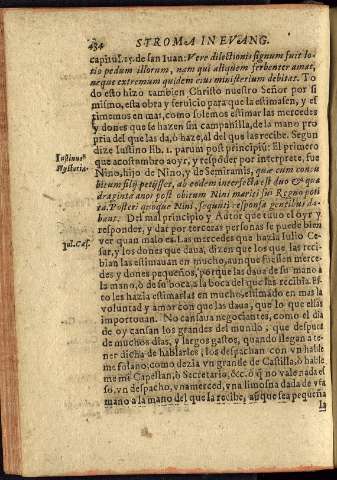 434 STROMA IN EVANG.
capitul. 15. de san Iuan: Vere dilectionis signum fuit lo-
tio pedum illorum, nam qui aliquem ferbenter amat,
neque extremum quidem eius ministerium debitat. To
do esto hizo tambien Christo nuestro Señor por si
mismo, esta obra y seruicio para que la estimasen, y es
timemos en mas, como solemos estimar las mercedes
y dones que se hazen sin campanilla, de la mano pro
pria del que las da, ò haze, al del que las recibe. Segun
dize Iustino lib. 1. parum post principiũ: El primero
Iustinus
Hystoria.
que acostumbro a oyr, y respõder por interprete, fue
Nino, hijo de Nino, y de Semiramis, quæ cum concu
bitum filij petijsset, ab eodem interfecta est duo & qua
draginta anos post obitum Nini mariti sui Regno poti
ta. Posteri quoque Nini, sequuti responsa gentibus da-
bant. Del mal principio y Autor que tuuo el oyr y
responder, y dar por terceras personas se puede bien
ver quan malo es. Las mercedes que hazia Iulio Ce-
Jul. Cæs.
sar, y los dones que daua, dizen que los que las reci-
bian las estimauan en mucho, aunque fuessen merce-
des y dones pequeños, porque las daua de su mano a
la mano, ò de su boca, a la boca del que las recibia. Es-
to les hazia estimarlas en mucho, estimado en mas la
voluntad y amor con que las daua, que lo que ellas
importauan. No cansaua negociantes, como el dia
de oy cansan los grandes del mundo; que despues
de muchos dias, y largos gastos, quando llegan a te-
ner dicha de hablarles, los despachan con vn hable
me fulano, como dezia vn grande de Castilla, ò hable
me mi Capellan, ò Secretario, &c. ò q̃ no vale nada es
so, vn despacho, vna merced, vna limosna dada de vna
mano a la mano del que la recibe, aũque sea pequeña
la